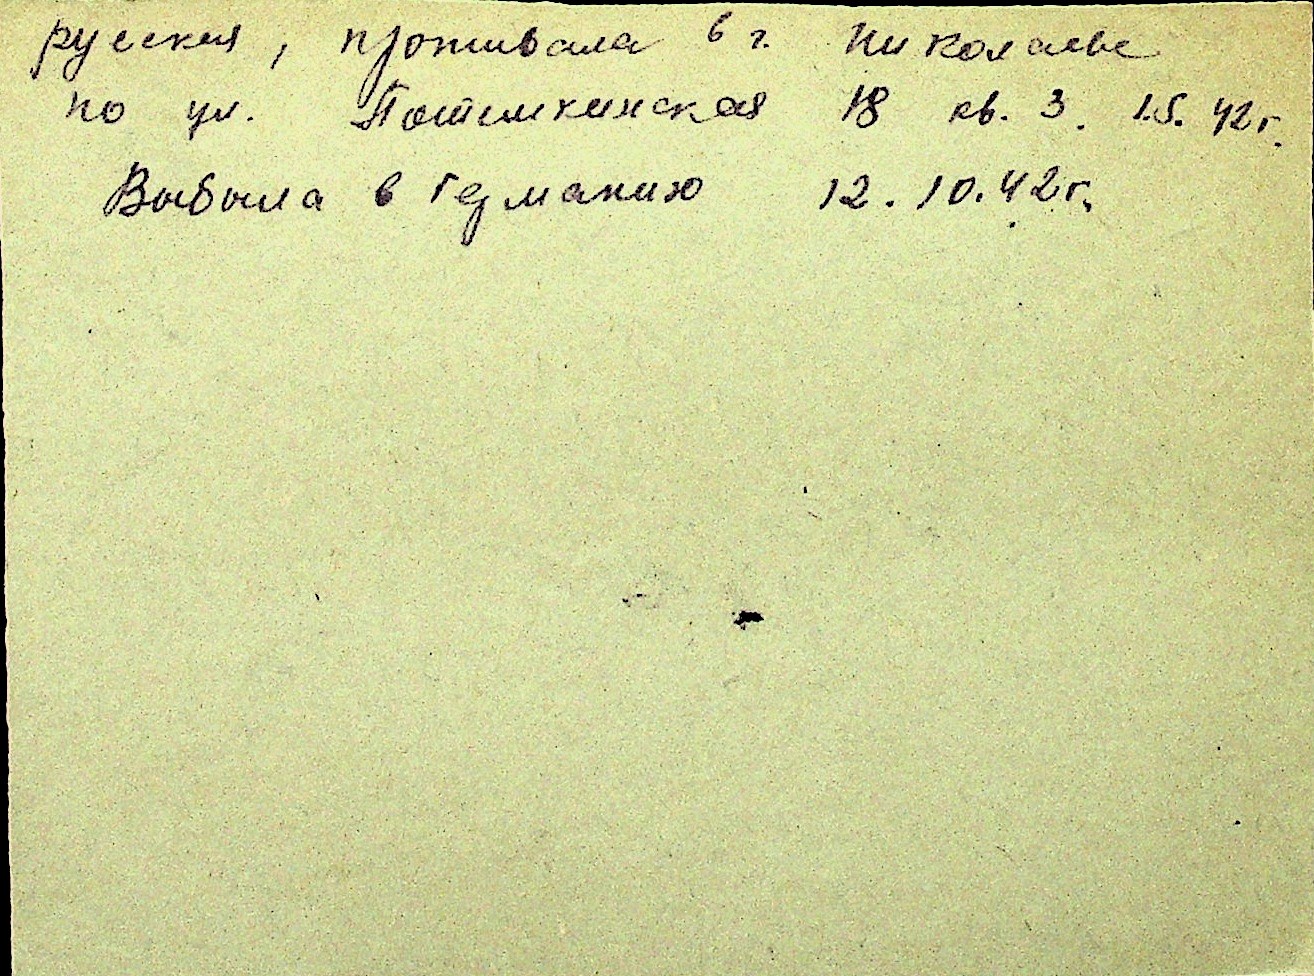 русская, проживала в г. Николаеве
по ул. Потемкинская 18 кв. 3. 1.5. 42г.
Выбыла в Германию 12.10.42г.